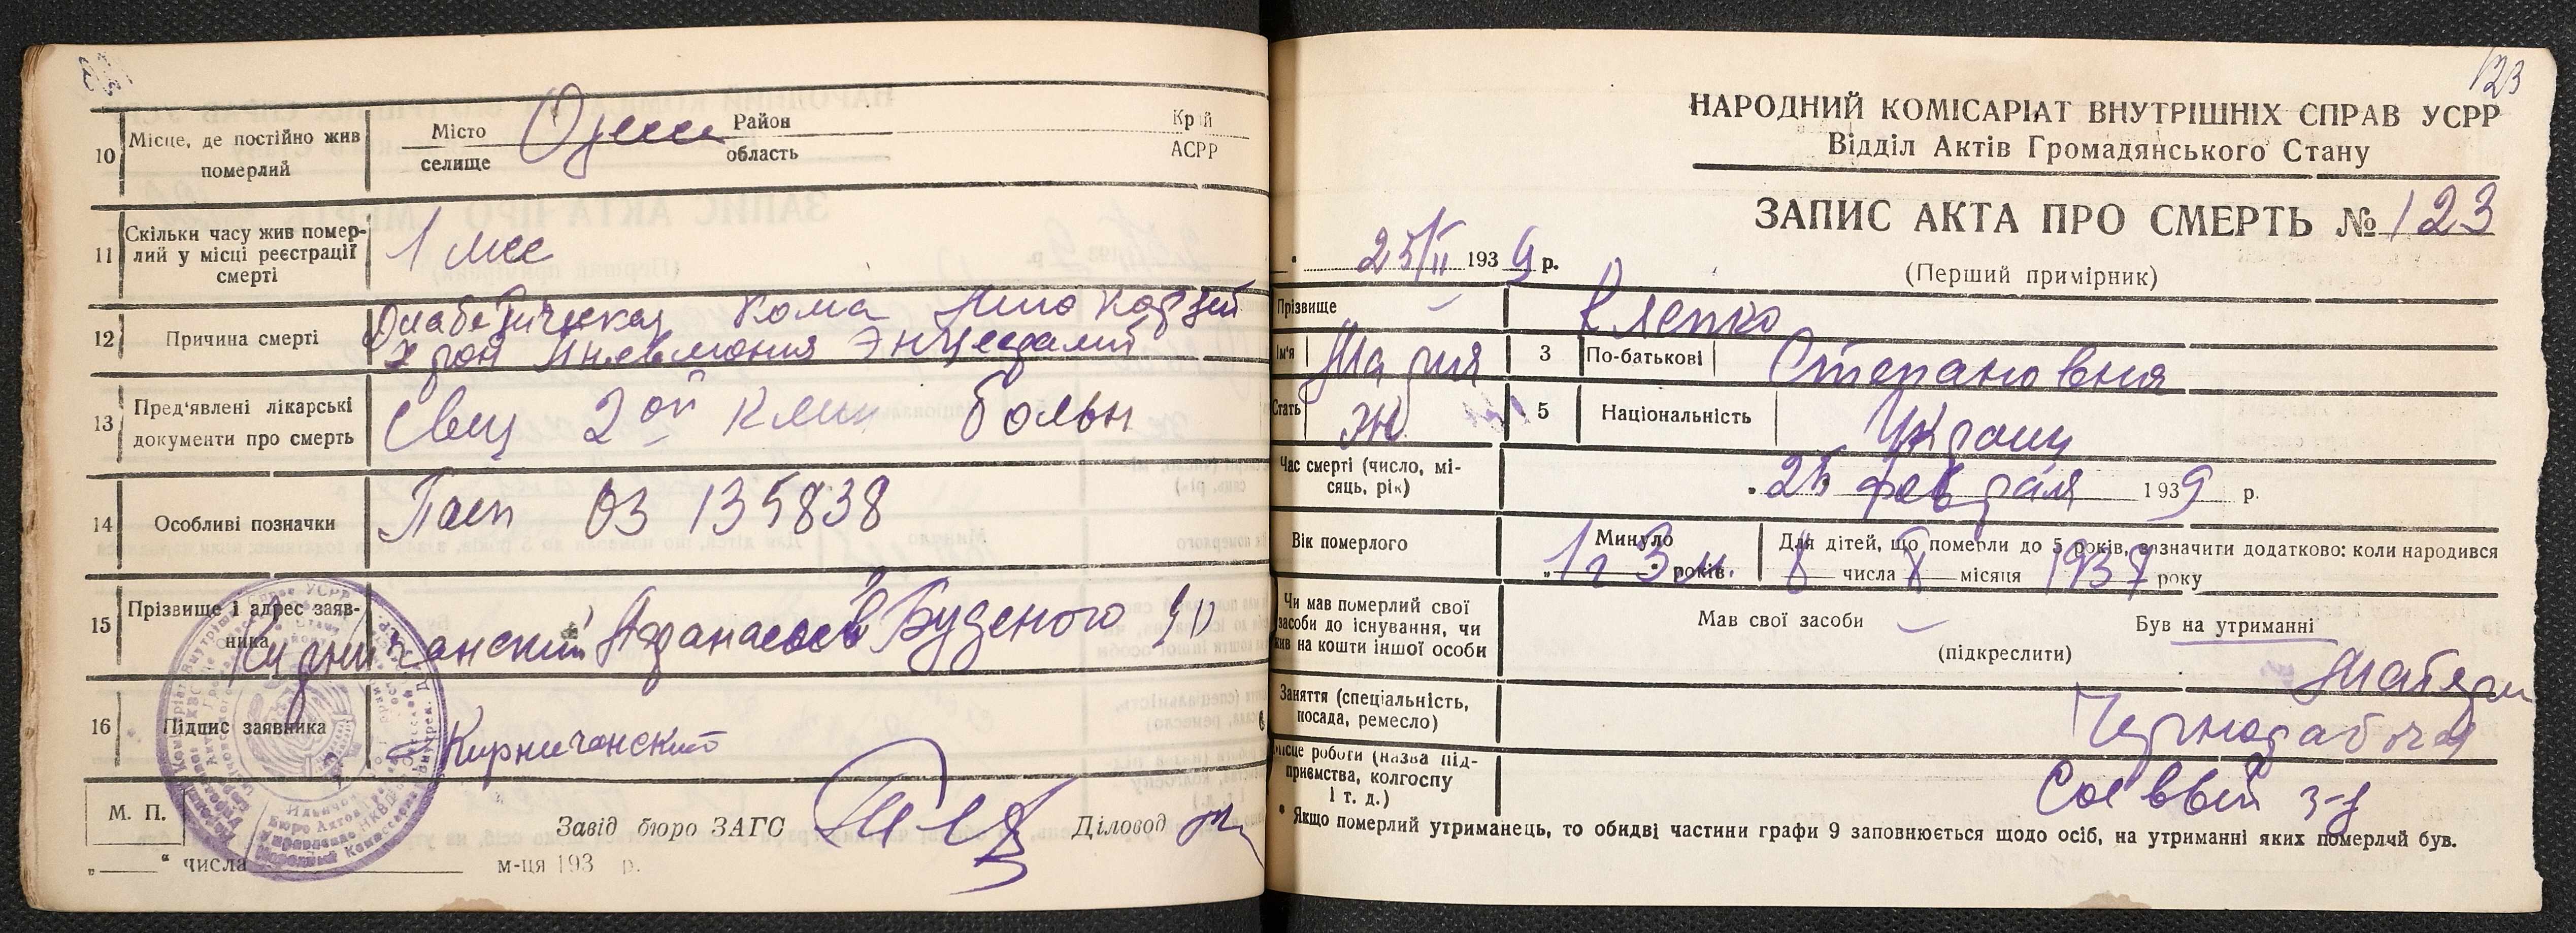 10 Місце, де постійно жив померлий
Місто Одесса Район Край
селище область АСРР
11 Скільки часу жив помер-
лий у місці реєстрації
смерті
1 мес
12 Причина смерті
Диабетическая кома
Хрон Пневмония Энцефалит
13 Пред'явлені лікарські
документи про смерть
Свид 2ой клин больн
14 Особливі позначки
Пасп 03 135838
15 Прізвище і адрес заяв-
ника
Кирничанский Буденого
16 Підпис заявника
Кирничанский
М. П.
Завід бюро ЗАГС Діловод
„ “ числа м-ця 193 р.
123
НАРОДНИЙ КОМІСАРІАТ ВНУТРІШНІХ СПРАВ УСРР
Відділ Актів Громадянського Стану
ЗАПИС АКТА ПРО СМЕРТЬ № 123
25/II 1939 р.
(Перший примірник)
Прізвище
Ім'я Мария 3 По-батькові Степановна
Стать Ж 5 Національність Украин
Час смерті (число, мі-
сяць, рік)
25 февраля 1939 р.
Вік померлого
Минуло
1 г 3 м. років
Для дітей, що померли до 5 років, зазначити додатково: коли народився
числа місяця 1937 року
Чи мав померлий свої
засоби до існування, чи
жив на кошти іншої особи
Мав свої засоби Був на утриманні
(підкреслити)
Матери
Заняття (спеціальність,
посада, ремесло)
Чернорабочая
Місце роботи (назва під-
приємства, колгоспу
і т. д.)
* Якщо померлий утриманець, то обидві частини графи 9 заповнюється щодо осіб, на утриманні яких померлий був.